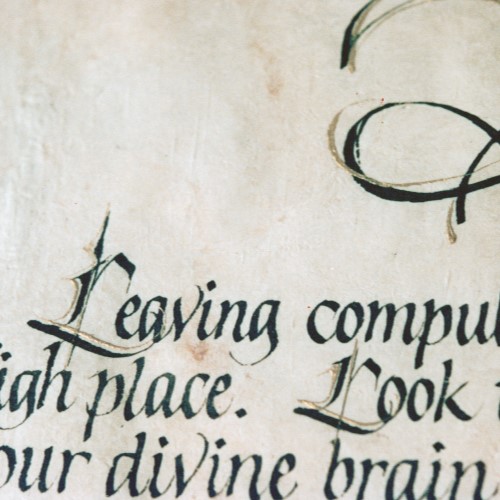 Leaving comput
igh place. Look
our divine brain